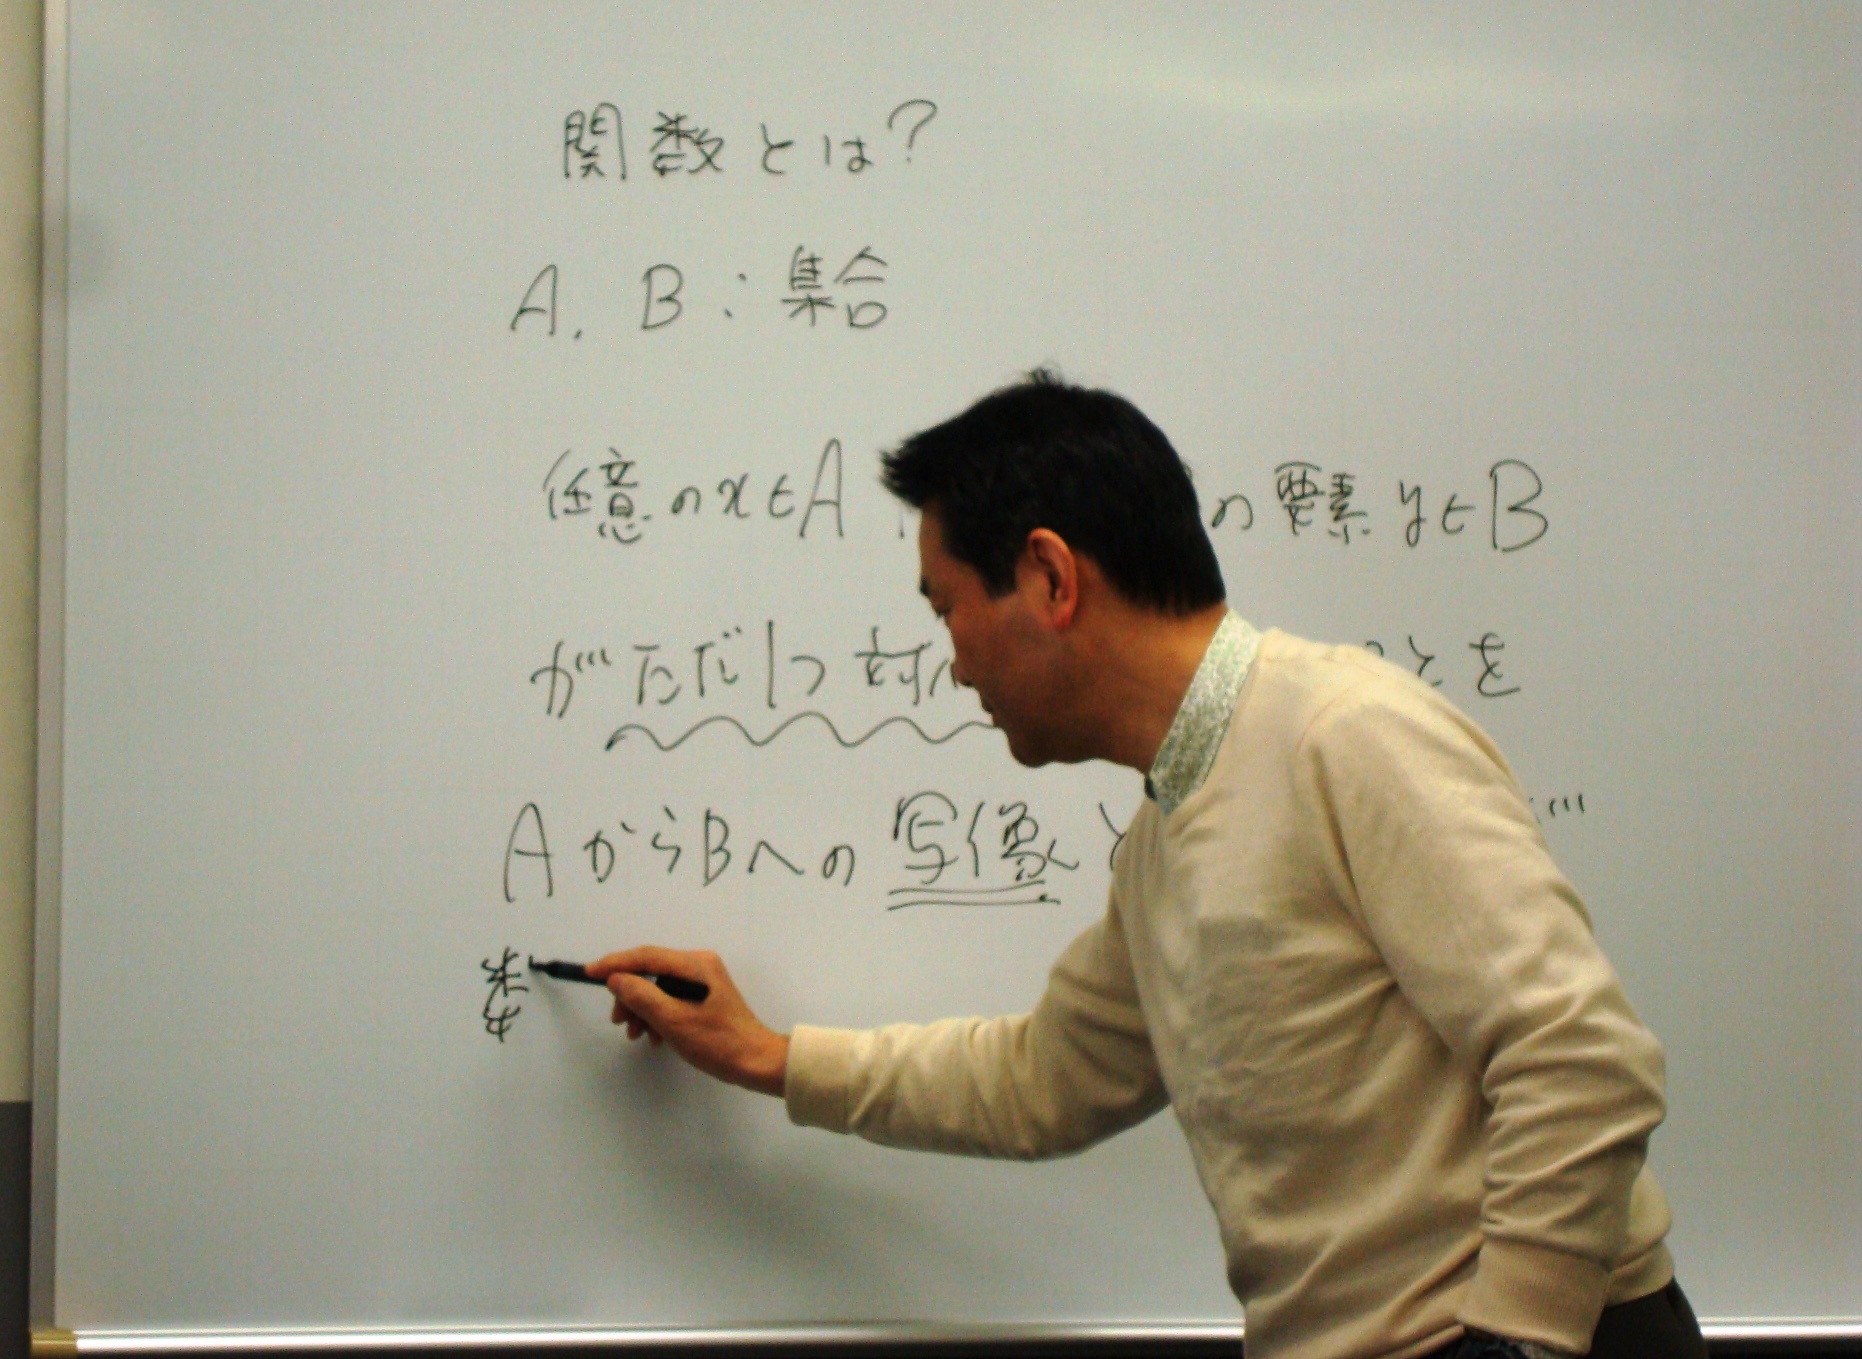 関数とは?
A, B : 集合
任意のx∈A の要素 y∈B
がただ1つ対 とを
AからBへの写像と